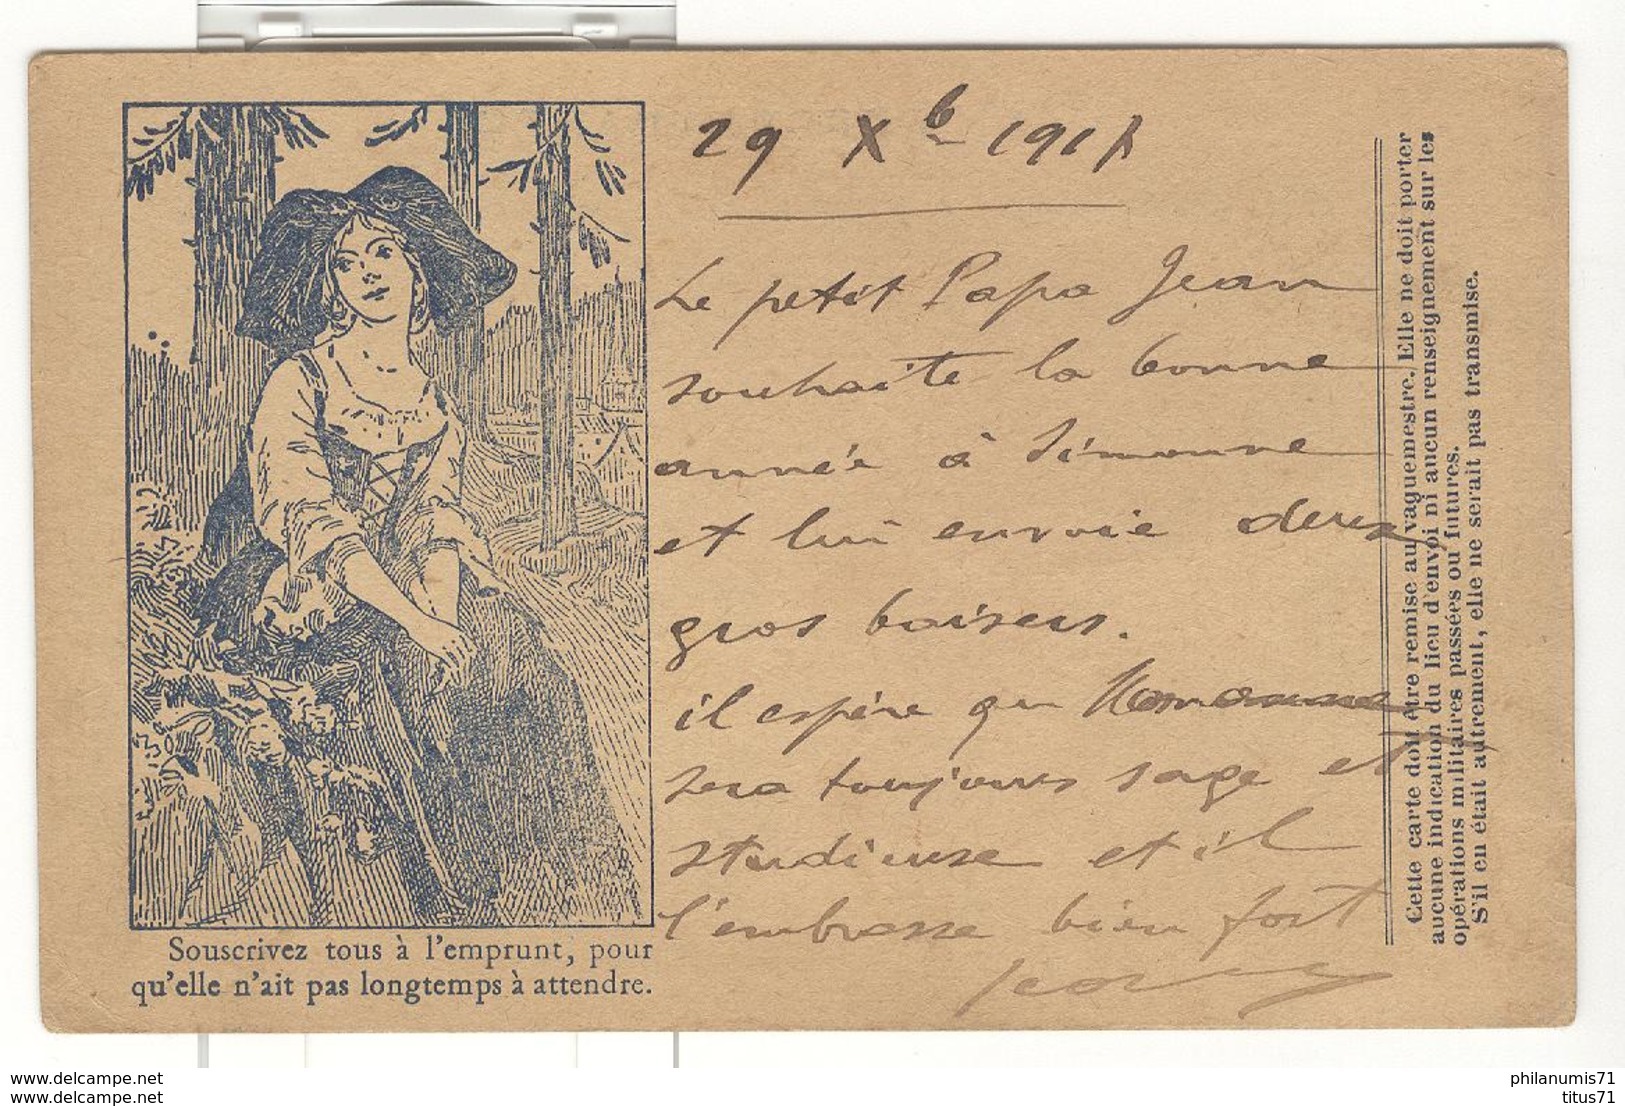 29 Xb 1917
Le petit Papa Jean
souhaite la bonne
année à Simonne
et lui envoie deux
gros baisers.
il espère que
sera toujours sage et
studieuse et il
l'embrasse bien fort
Jean
Souscrivez tous à l'emprunt, pour
qu'elle n'ait pas longtemps à attendre.
Cette carte doit être remise au vaguemestre. Elle ne doit porter
aucune indication du lieu d'envoi ni aucun renseignement sur les
opérations militaires passées ou futures.
S'il en était autrement, elle ne serait pas transmise.
www.delcampe.net
www.delcampe.net
philanumis71
titus71